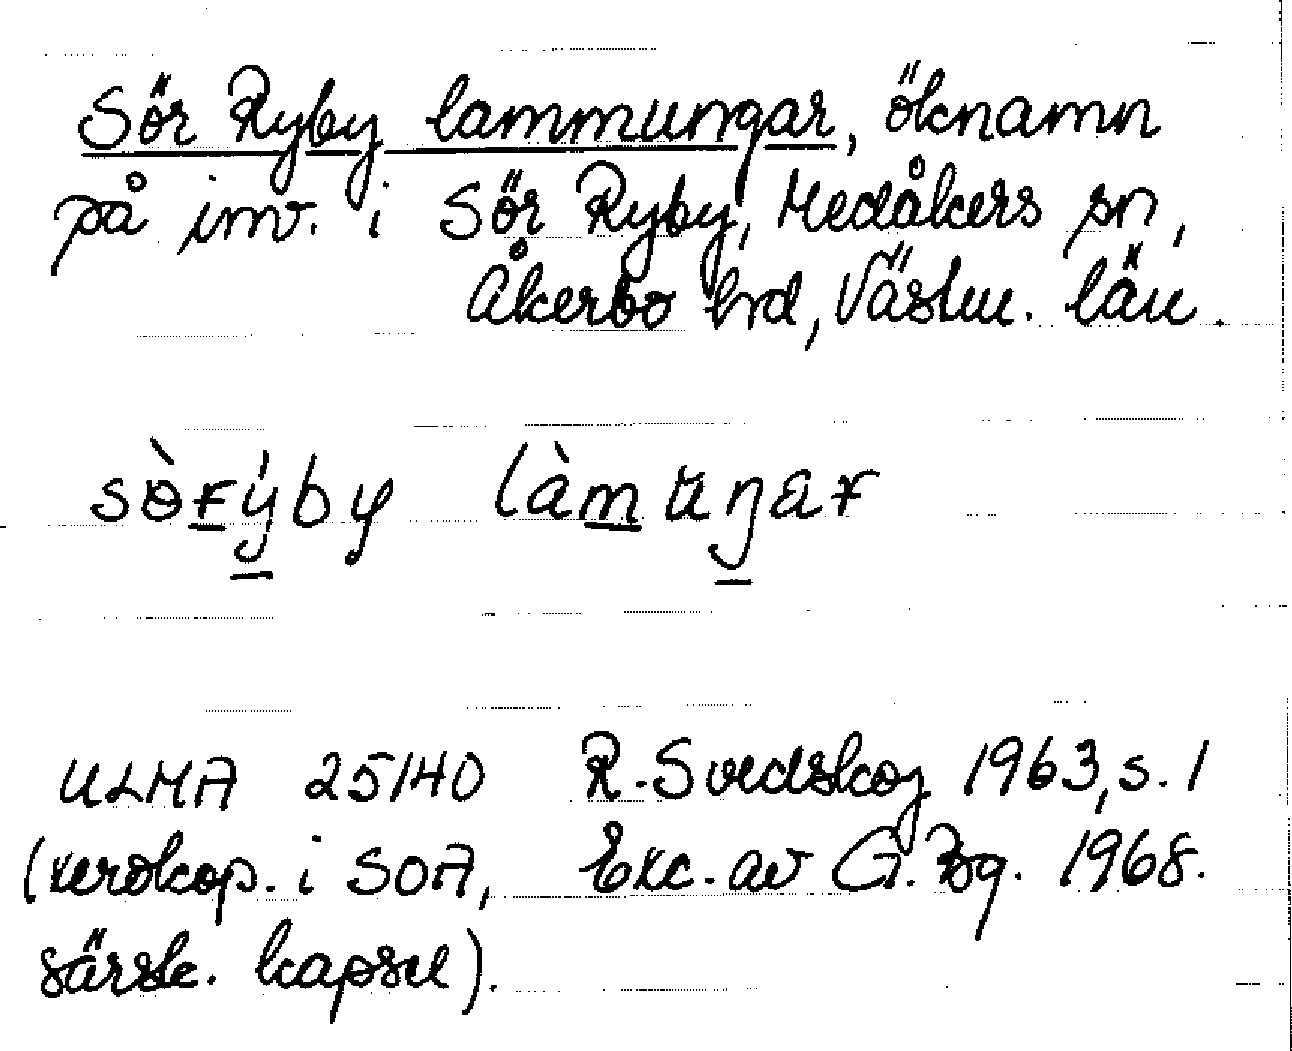 Sör Ryby lammungar, öknamn
på inv. i Sör Ryby, Medåkers sn,
Åkerbo hrd, Västm. län.
sò̵ɍýby làmuŋar
ULMA 25140 R. Svedskog 1963, s. 1
(xerokop. i SOA, Exc. av G. Bg. 1968.
särsk. kapsel).